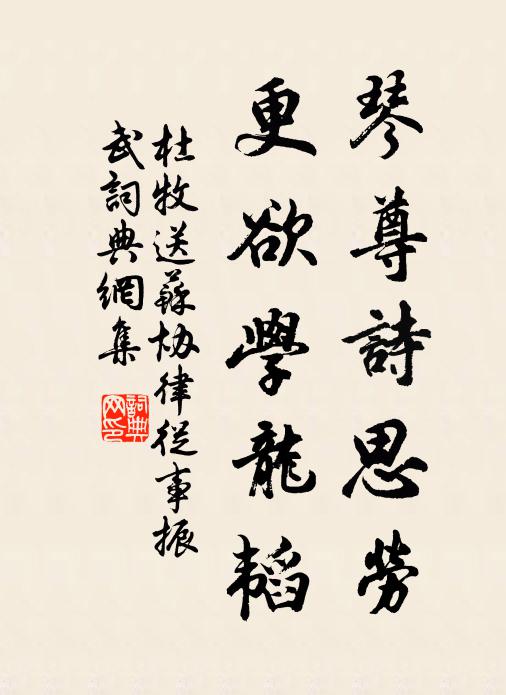 琴尊詩思勞
更欲學龍韜
杜牧送蘇協律從事振
武詞典網集
詞典網印